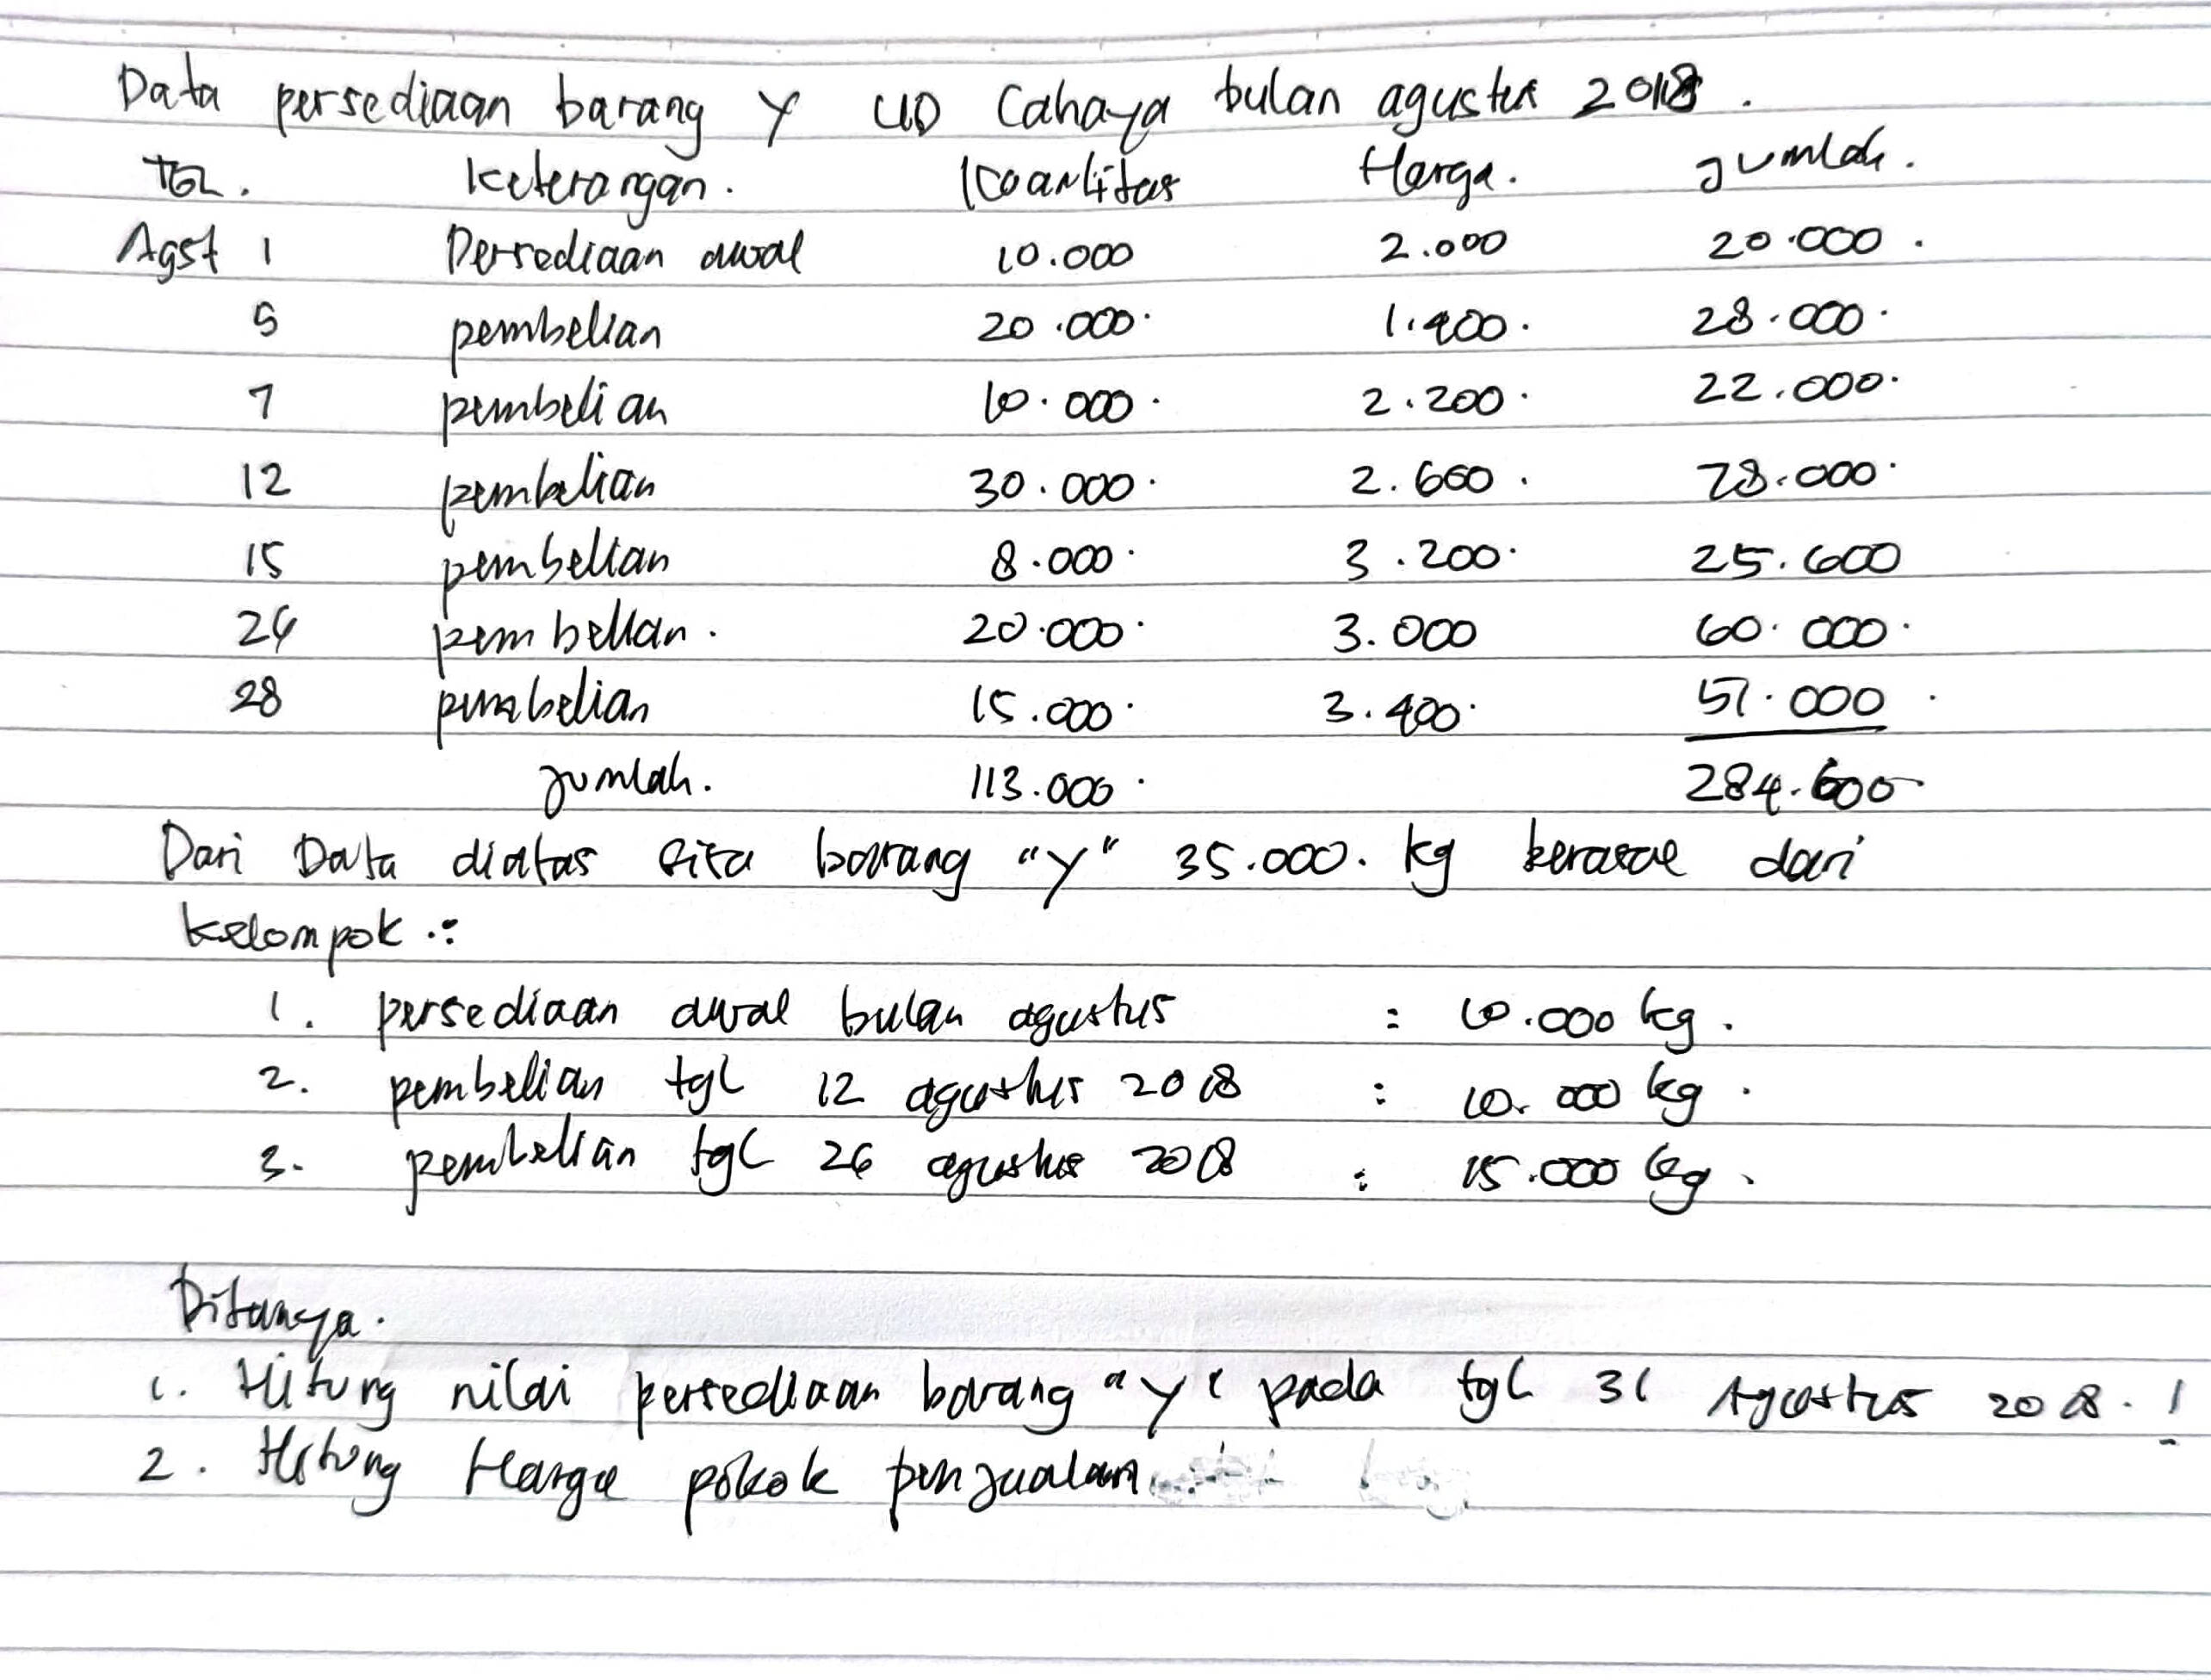 Data persediaan barang Y UD Cahaya bulan agustus 2018.
TGL. keterangan. Kuantitas Harga. Jumlah.
Agst 1 Persediaan awal 10.000 2.000 20.000.
5 pembelian 20.000. 1.400. 28.000.
7 pembelian 10.000. 2.200. 22.000.
12 pembelian 30.000. 2.600. 78.000.
15 pembelian 8.000. 3.200. 25.600
26 pembelian. 20.000. 3.000 60.000.
28 pembelian 15.000. 3.400. 51.000.
Jumlah. 113.000. 284.600
Dari Data diatas sisa barang "Y" 35.000. kg berasal dari
kelompok.:
1. persediaan awal bulan agustus : 10.000 kg.
2. pembelian tgl 12 agustus 2018 : 10.000 kg.
3. pembelian tgl 26 agustus 2018 : 15.000 kg.
Ditanya.
1. Hitung nilai persediaan barang "Y" pada tgl 31 Agustus 2018.!
2. Hitung Harga pokok penjualan